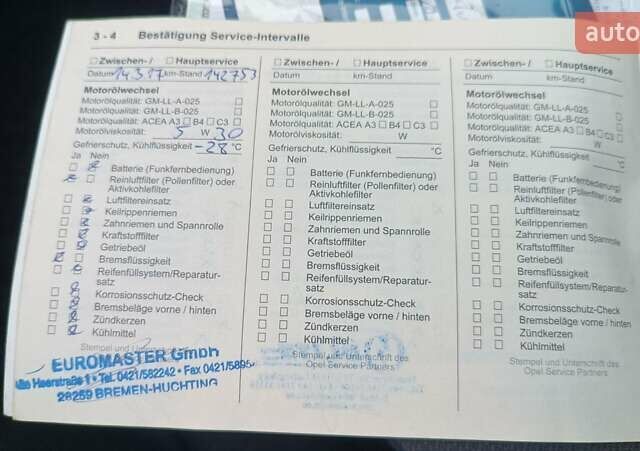 auto
3 - 4 Bestätigung Service-Intervalle
Zwischen- / Hauptservice
Datum 14.3.17 km-Stand 142753
Motorölwechsel
Motorölqualität: GM-LL-A-025
Motorölqualität: GM-LL-B-025
Motorölqualität: ACEA A3 B4 C3
Motorölviskosität: 5 W 30
Gefrierschutz, Kühlflüssigkeit -28 °C
Ja Nein
Batterie (Funkfernbedienung)
Reinluftfilter (Pollenfilter) oder
Aktivkohlefilter
Luftfiltereinsatz
Keilrippenriemen
Zahnriemen und Spannrolle
Kraftstofffilter
Getriebeöl
Bremsflüssigkeit
Reifenfüllsystem/Reparatur-
satz
Korrosionsschutz-Check
Bremsbeläge vorne / hinten
Zündkerzen
Kühlmittel
Stempel und Unterschrift
EUROMASTER GmbH
Heerstraße 1 • Tel. 0421/582242 • Fax 0421/5895
28259 BREMEN-HUCHTING
Zwischen- / Hauptservice
Datum km-Stand
Motorölwechsel
Motorölqualität: GM-LL-A-025
Motorölqualität: GM-LL-B-025
Motorölqualität: ACEA A3 B4 C3
Motorölviskosität: W
Gefrierschutz, Kühlflüssigkeit °C
Ja Nein
Batterie (Funkfernbedienung)
Reinluftfilter (Pollenfilter) oder
Aktivkohlefilter
Luftfiltereinsatz
Keilrippenriemen
Zahnriemen und Spannrolle
Kraftstofffilter
Getriebeöl
Bremsflüssigkeit
Reifenfüllsystem/Reparatur-
satz
Korrosionsschutz-Check
Bremsbeläge vorne / hinten
Zündkerzen
Kühlmittel
Stempel und Unterschrift des
Opel Service Partners
Zwischen- / Hauptservice
Datum km-Stand
Motorölwechsel
Motorölqualität: GM-LL-A-025
Motorölqualität: GM-LL-B-025
Motorölqualität: ACEA A3 B4 C3
Motorölviskosität: W
Gefrierschutz, Kühlflüssigkeit °C
Ja Nein
Batterie (Funkfernbedienung)
Reinluftfilter (Pollenfilter) oder
Aktivkohlefilter
Luftfiltereinsatz
Keilrippenriemen
Zahnriemen und Spannrolle
Kraftstofffilter
Getriebeöl
Bremsflüssigkeit
Reifenfüllsystem/Reparatur-
satz
Korrosionsschutz-Check
Bremsbeläge vorne / hinten
Zündkerzen
Kühlmittel
Stempel und Unterschrift des
Opel Service Partners